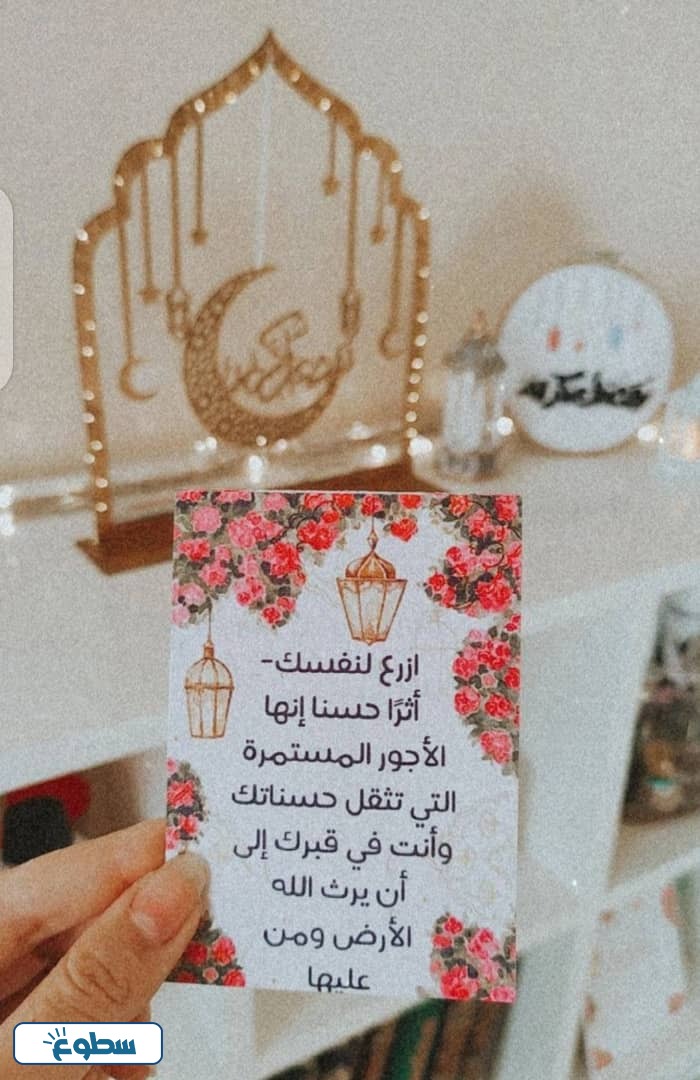 رمضان كريم
ازرع لنفسك-
أثرًا حسنا إنها
الأجور المستمرة
التي تثقل حسناتك
وأنت في قبرك إلى
أن يرث الله
الأرض ومن
عليها
سطوع